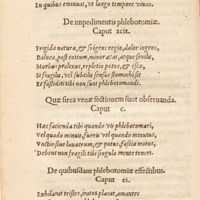 In quibus eminuit, ut longo tempore vivas.
De impedimentis phlebotomiæ.
Caput xcix.
Frigida natura, & frigens regio, dolor ingens,
Balnea, post coitum, minor ætas, atque senilis,
Morbus prolixus, repletio potus, & escæ,
Si fragilis, vel subtilis sensus stomachi sit
Et fastiditi tibi non sunt phlebotomandi.
Quæ circa venæ sectionem sunt observanda.
Caput c.
Hæc facienda tibi quando vis phlebotomari,
Vel quando minuis, fueris vel quando minutus,
Unctio sive lavacrum, & potus, fascia motus,
Debent non fragili tibi singula mente teneri.
De quibusdam phlebotomiæ effectibus.
Caput ci.
Exhilarat tristes, iratos placat, amantes